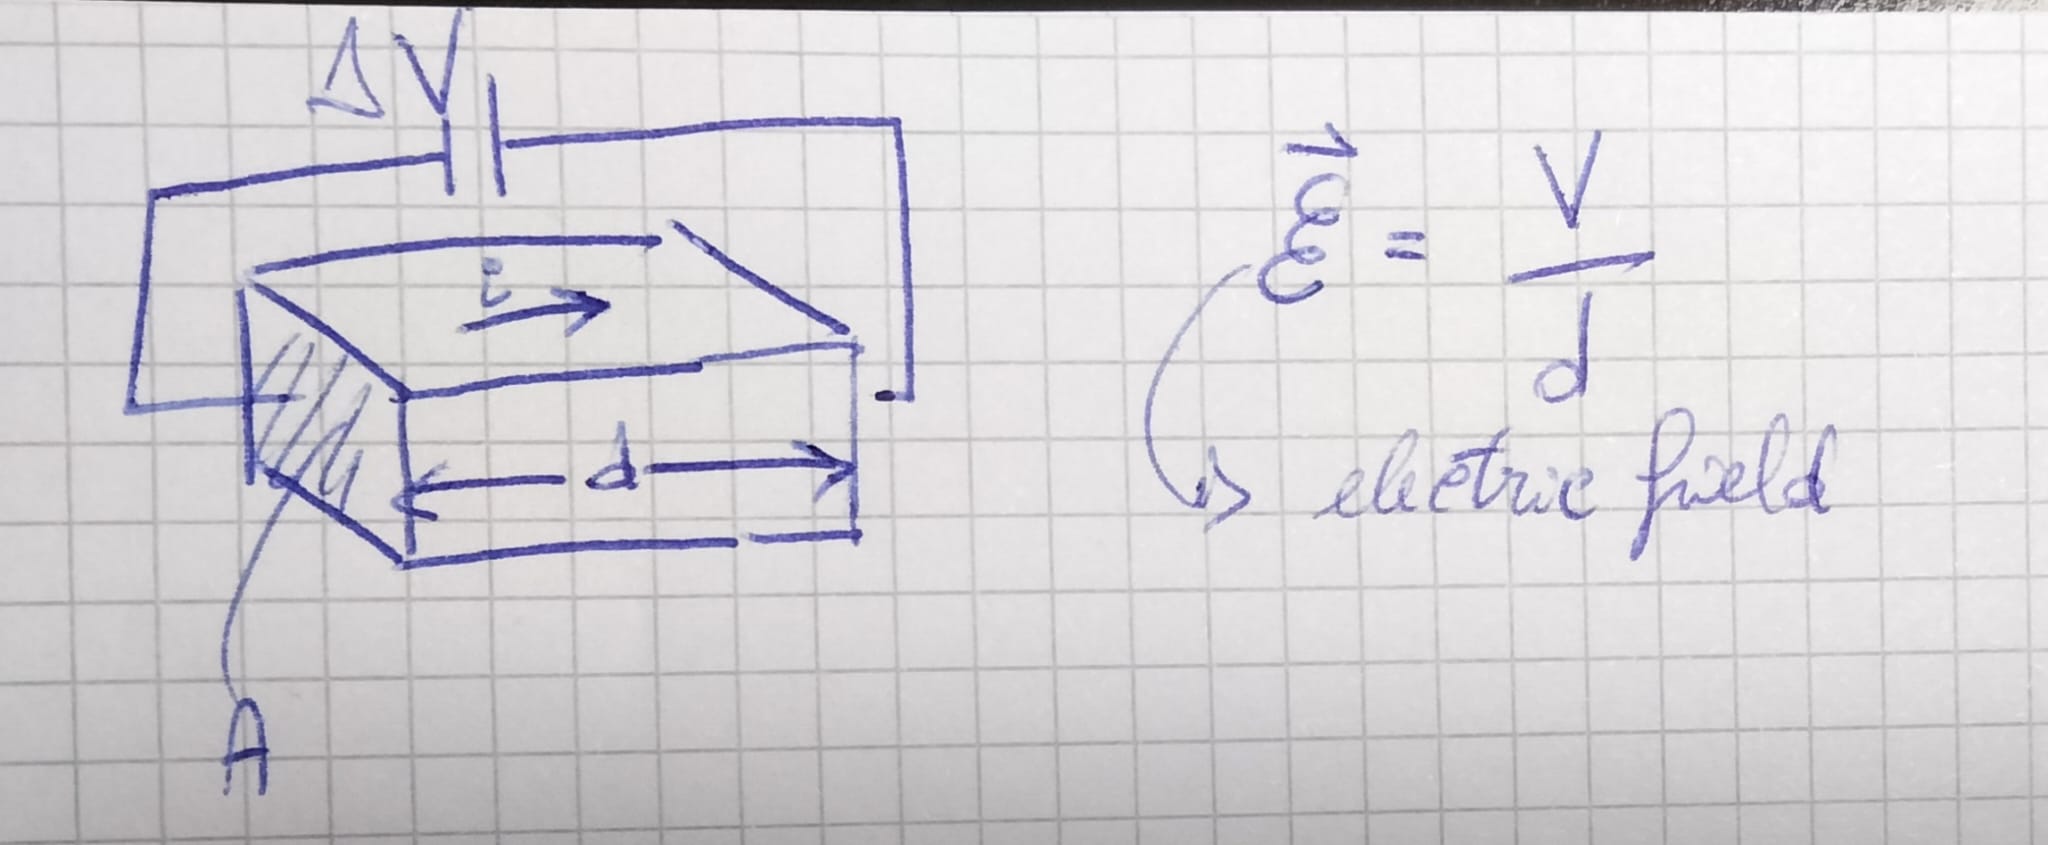 ΔV
i
d
A
ℰ⃗ = V / d
electric field